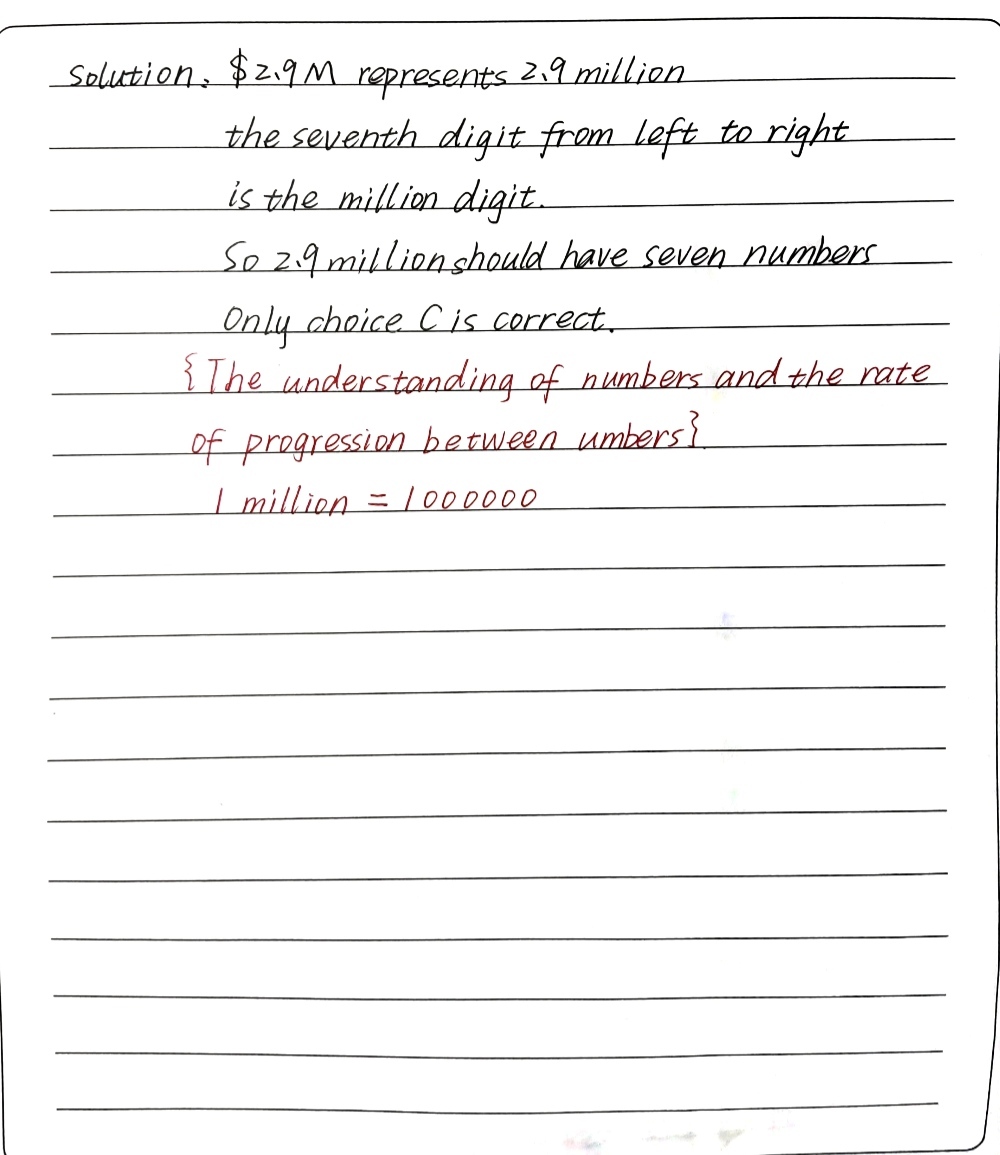 Solution: $2.9M represents 2.9 million
the seventh digit from left to right
is the million digit.
So 2.9 million should have seven numbers
Only choice C is correct.
{The understanding of numbers and the rate
of progression between umbers}
1 million = 1000000